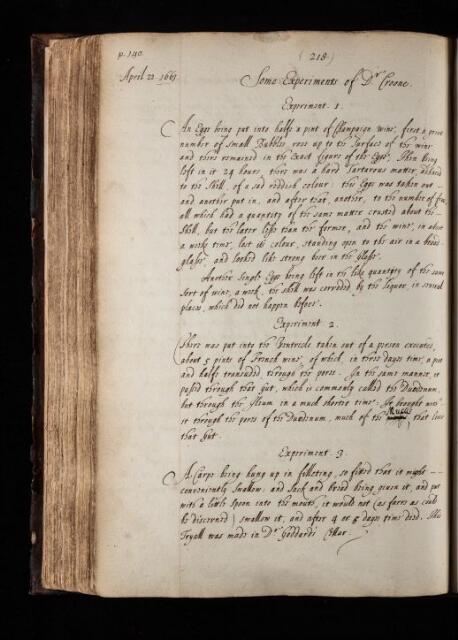 p. 140
( 218 )
April 22. 1663.
Some Experiments of Dr. Croone.
Experiment. 1.
An Egge being put into halfe a pint of Champaign wine, first a great
number of small Bubbles rose up to the Surface of the wine
and there remained in the Exact figure of the Egge. Then being
left in it 24 houres, there was a hard Tartarous matter, adhered
to the Shell, of a sad reddish colour: the Egge was taken out
and another put in, and after that, another, to the number of
all which had a quantity of the same matter crusted about the
Shell, but the later lesse than the former, and the wine, in about
a weeks time, lost its colour, standing open to the air in a broad
glasse, and looked like strong beer in the Glasse.
Another Single Egge being left in the like quantity of the same
sort of wine, a week, the shell was corroded by the liquor, in several
places, which did not happen before.
Experiment 2.
There was put into the Ventricle taken out of a person executed,
about 5 pints of French wine, of which, in three dayes time, a pint
and halfe transuded through the pores. In the same manner, it
passed through that gut, which is commonly called the Duodenum,
but through the Ileum in a much shorter time. It brought with
it through the pores of the Duodenum, much of the Mucus, that lines
that Gut.
Experiment 3.
A Carpe being hung up in Netting, so fitted that it might
conveniently swallow, and Sack and bread being given it, and put
with a little Spoon into the mouth, it would not (as farre as could
be discerned) swallow it, and after 4 or 5 dayes time died. This
Tryall was made in Dr. Goddards Cellar.